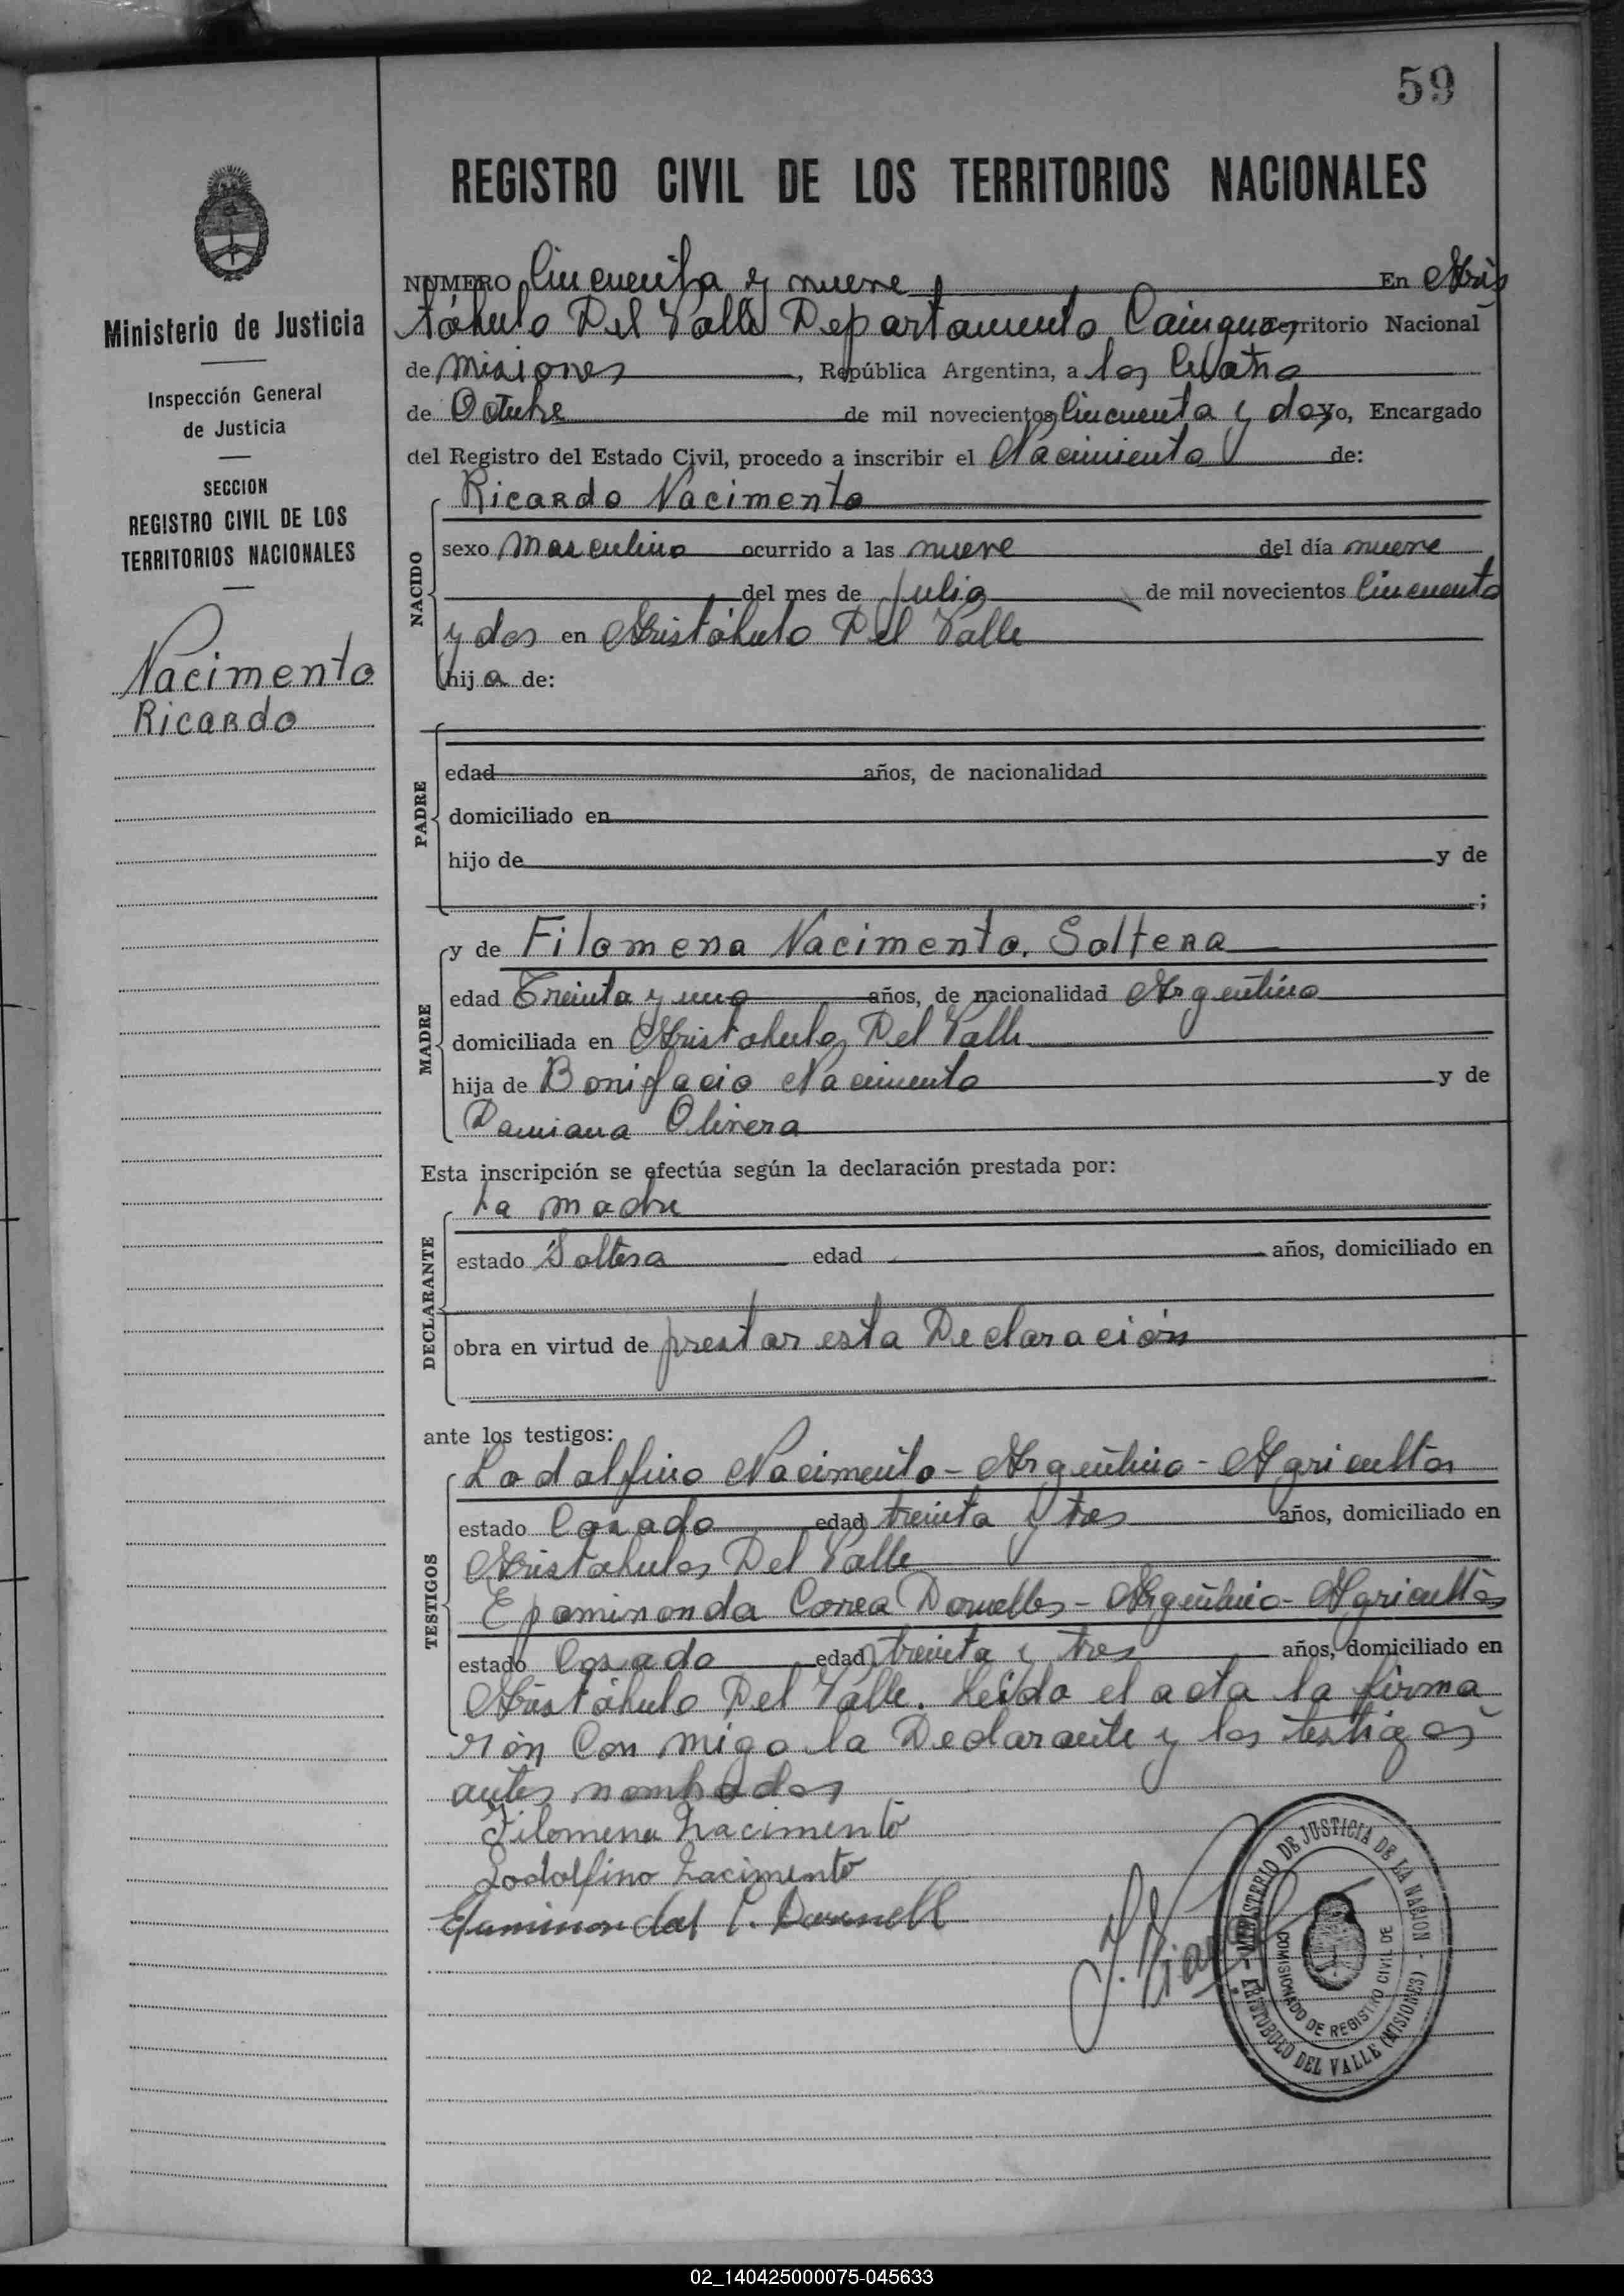 59
REGISTRO CIVIL DE LOS TERRITORIOS NACIONALES
Ministerio de Justicia
Inspección General
de Justicia
SECCION
REGISTRO CIVIL DE LOS
TERRITORIOS NACIONALES
Nacimento
Ricardo
NUMERO Cincuenta y nueve En Aris
tóbulo Del Valle Departamento Cainguas, Territorio Nacional
de Misiones, República Argentina, a los Cuatro
de Octubre de mil novecientos Cincuenta y dos yo, Encargado
del Registro del Estado Civil, procedo a inscribir el Nacimiento de:
NACIDO
Ricardo Nacimento
sexo Masculino ocurrido a las nueve del día nueve
del mes de Julio de mil novecientos Cincuenta
y dos en Aristóbulo Del Valle
hij o de:
PADRE
edad años, de nacionalidad
domiciliado en
hijo de y de
;
MADRE
y de Filomena Nacimento. Soltera
edad Treinta y uno años, de nacionalidad Argentino
domiciliada en Aristobulo Del Valle
hija de Bonifacio Nacimento y de
Damiana Olivera
Esta inscripción se efectúa según la declaración prestada por:
DECLARANTE
La madre
estado Soltera edad años, domiciliado en
obra en virtud de prestar esta Declaración
ante los testigos:
TESTIGOS
Lodolfino Nacimento - Argentino - Agricultor
estado Casado edad treinta y tres años, domiciliado en
Aristobulos Del Valle
Epaminonda Correa Dornelles - Argentino - Agricultor
estado Casado edad treinta y tres años, domiciliado en
Aristóbulo Del Valle. Leído el acta la firma
rón Con migo la Declarante y los testigos
antes nombrados
Filomena Nacimento
Lodolfino Nacimento
MINISTERIO DE JUSTICIA DE LA NACION - ARISTOBULO DEL VALLE (MISIONES) -
COMISIONADO DE REGISTRO CIVIL DE
02_140425000075-045633